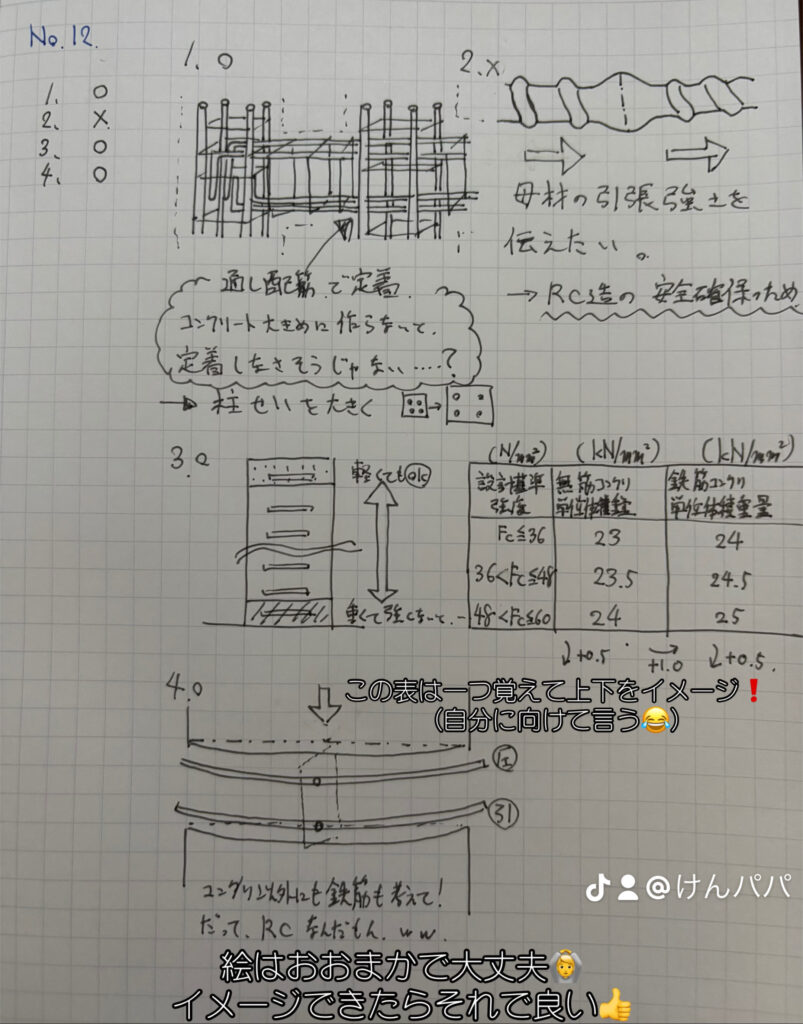 No.12.
1. O
2. X
3. O
4. O
1. O
通し配筋で定着.
コンクリート大きめに作らないで、
定着しなさそうじゃない....?
→ 柱せいを大きく
2. X
母材の引張強土を
伝えたい。
→ RC造の安全確保のため
3. O
軽くてもOK
重くて強くないと..
(N/mm²) (kN/mm²) (kN/mm²)
設計基準強度 無筋コンクリ単位体積重量 鉄筋コンクリ単位体積重量
Fc≦36 23 24
36<Fc≦48 23.5 24.5
48<Fc≦60 24 25
↓+0.5 → +1.0 ↓+0.5.
この表は一つ覚えて上下をイメージ❗
(自分に向けて言う😂)
4. O
圧
引
コンクリ以外にも鉄筋も考えて!
だって、RCなんだもん.ww.
@けんパパ
絵はおおまかで大丈夫🙆
イメージできたらそれで良い👍